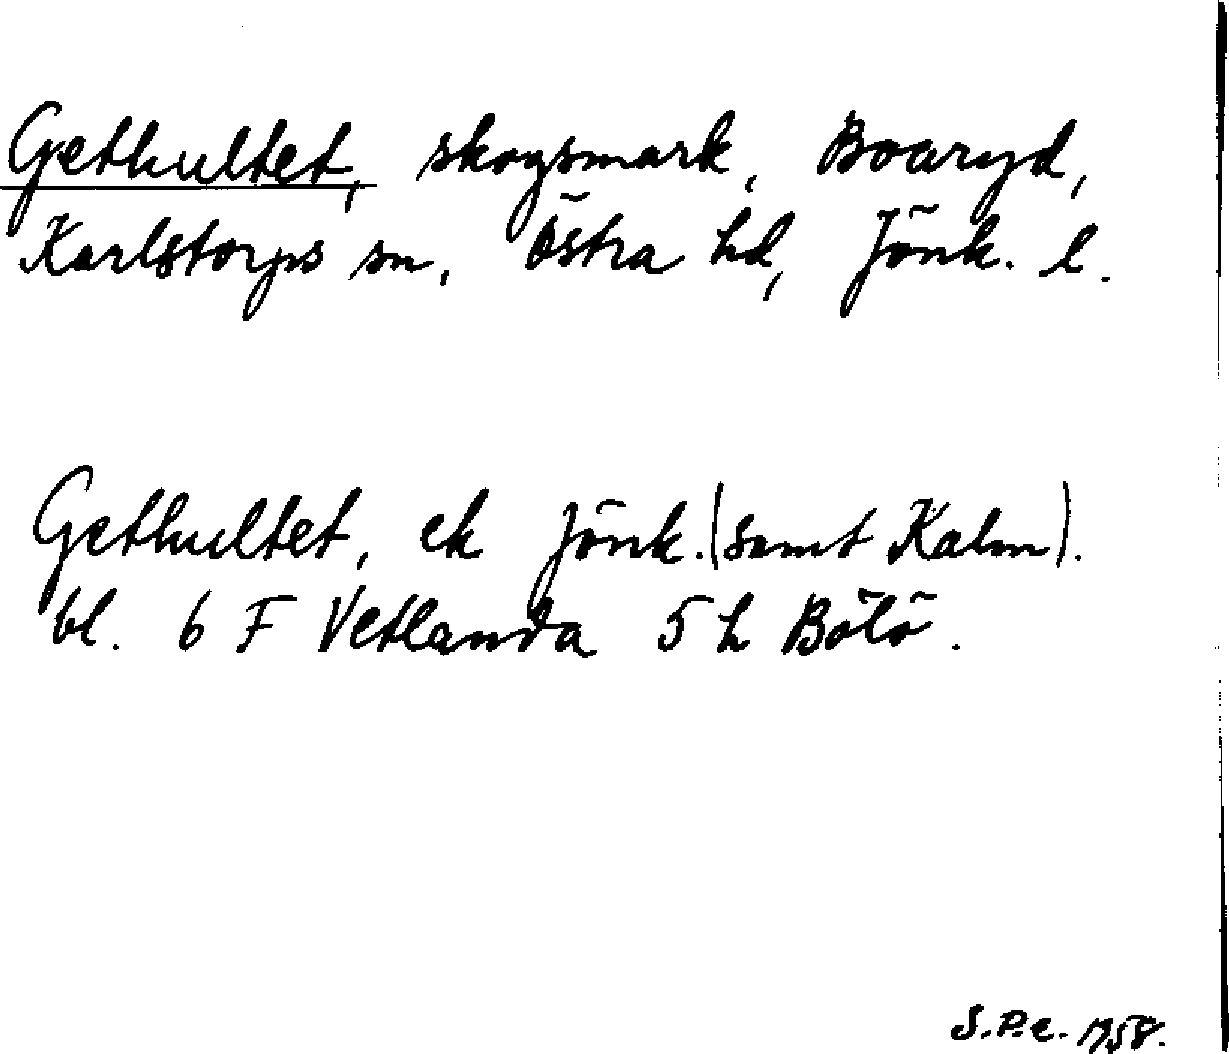 Gethultet, skogsmark, Boaryd,
Karlstorps sn, Östra hd, Jönk. l.
Gethultet, ek Jönk. (samt Kalm).
bl. 6 F Vetlanda 5 h Bölö.
S.P.C. 1958.